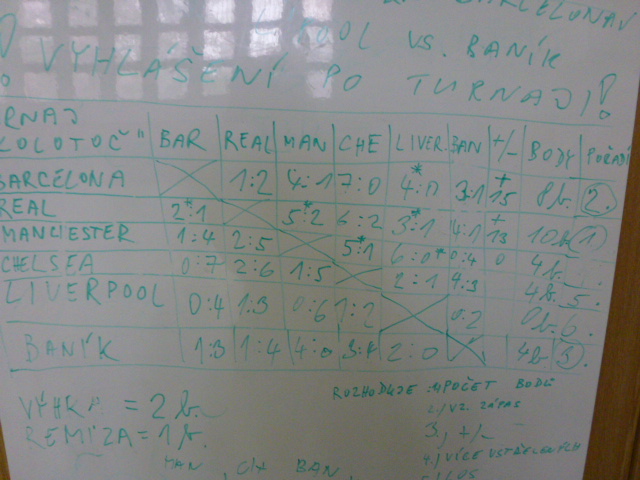 BARCELONA
VS. BANÍK
! VYHLÁŠENÍ PO TURNAJI!
BAR REAL MAN CHE LIVER. BAN +/- BODY POŘADÍ
BARCELONA 1:2 4:1 7:0 4*:0 3:1 +15 8b. 2.
REAL 2*:1 5*:2 6:2 3*:1 4:1 +13 10b. 1
MANCHESTER 1:4 2:5 5*:1 6:0* 0:4 0 4b.
CHELSEA 0:7 2:6 1:5 2:1 4:3 4b. 5.
LIVERPOOL 0:4 1:3 0:6 1:2 0:2 0b. 6.
BANÍK 1:3 1:4 4:0 3:4 2:0 4b. 3.
VÝHRA = 2 b.
REMÍZA = 1 b.
ROZHODUJE: 1) POČET BODŮ
2) VZ. ZÁPAS
3) +/-
4) VÍCE VSTŘELENÝCH
5) LOS
MAN, CHE, BAN